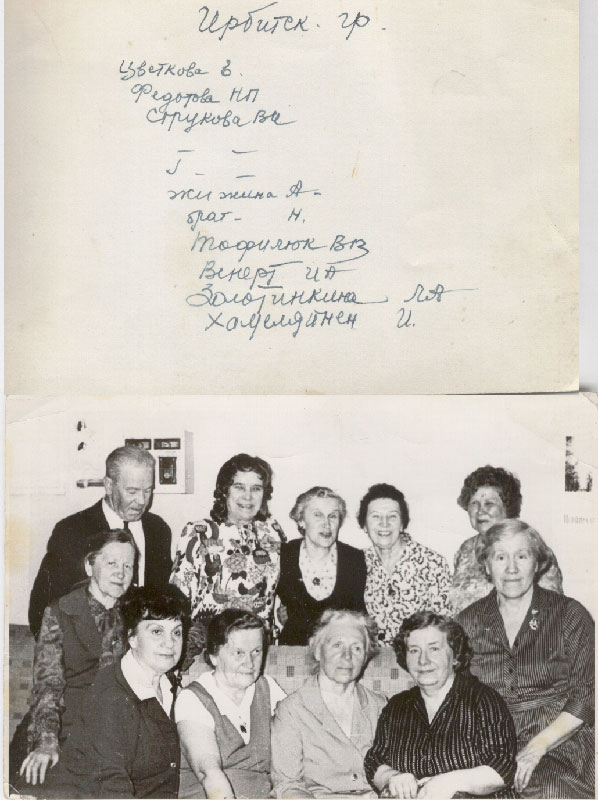 Ирбитск. гр.
Цветкова Е.
Федотова НП
Струкова ВА
Г. –
Жижина А-
брат- Н.
Тофилюк ВВ
Венерт ИА
Золотинкина ЛА
Хамеляйнен И.